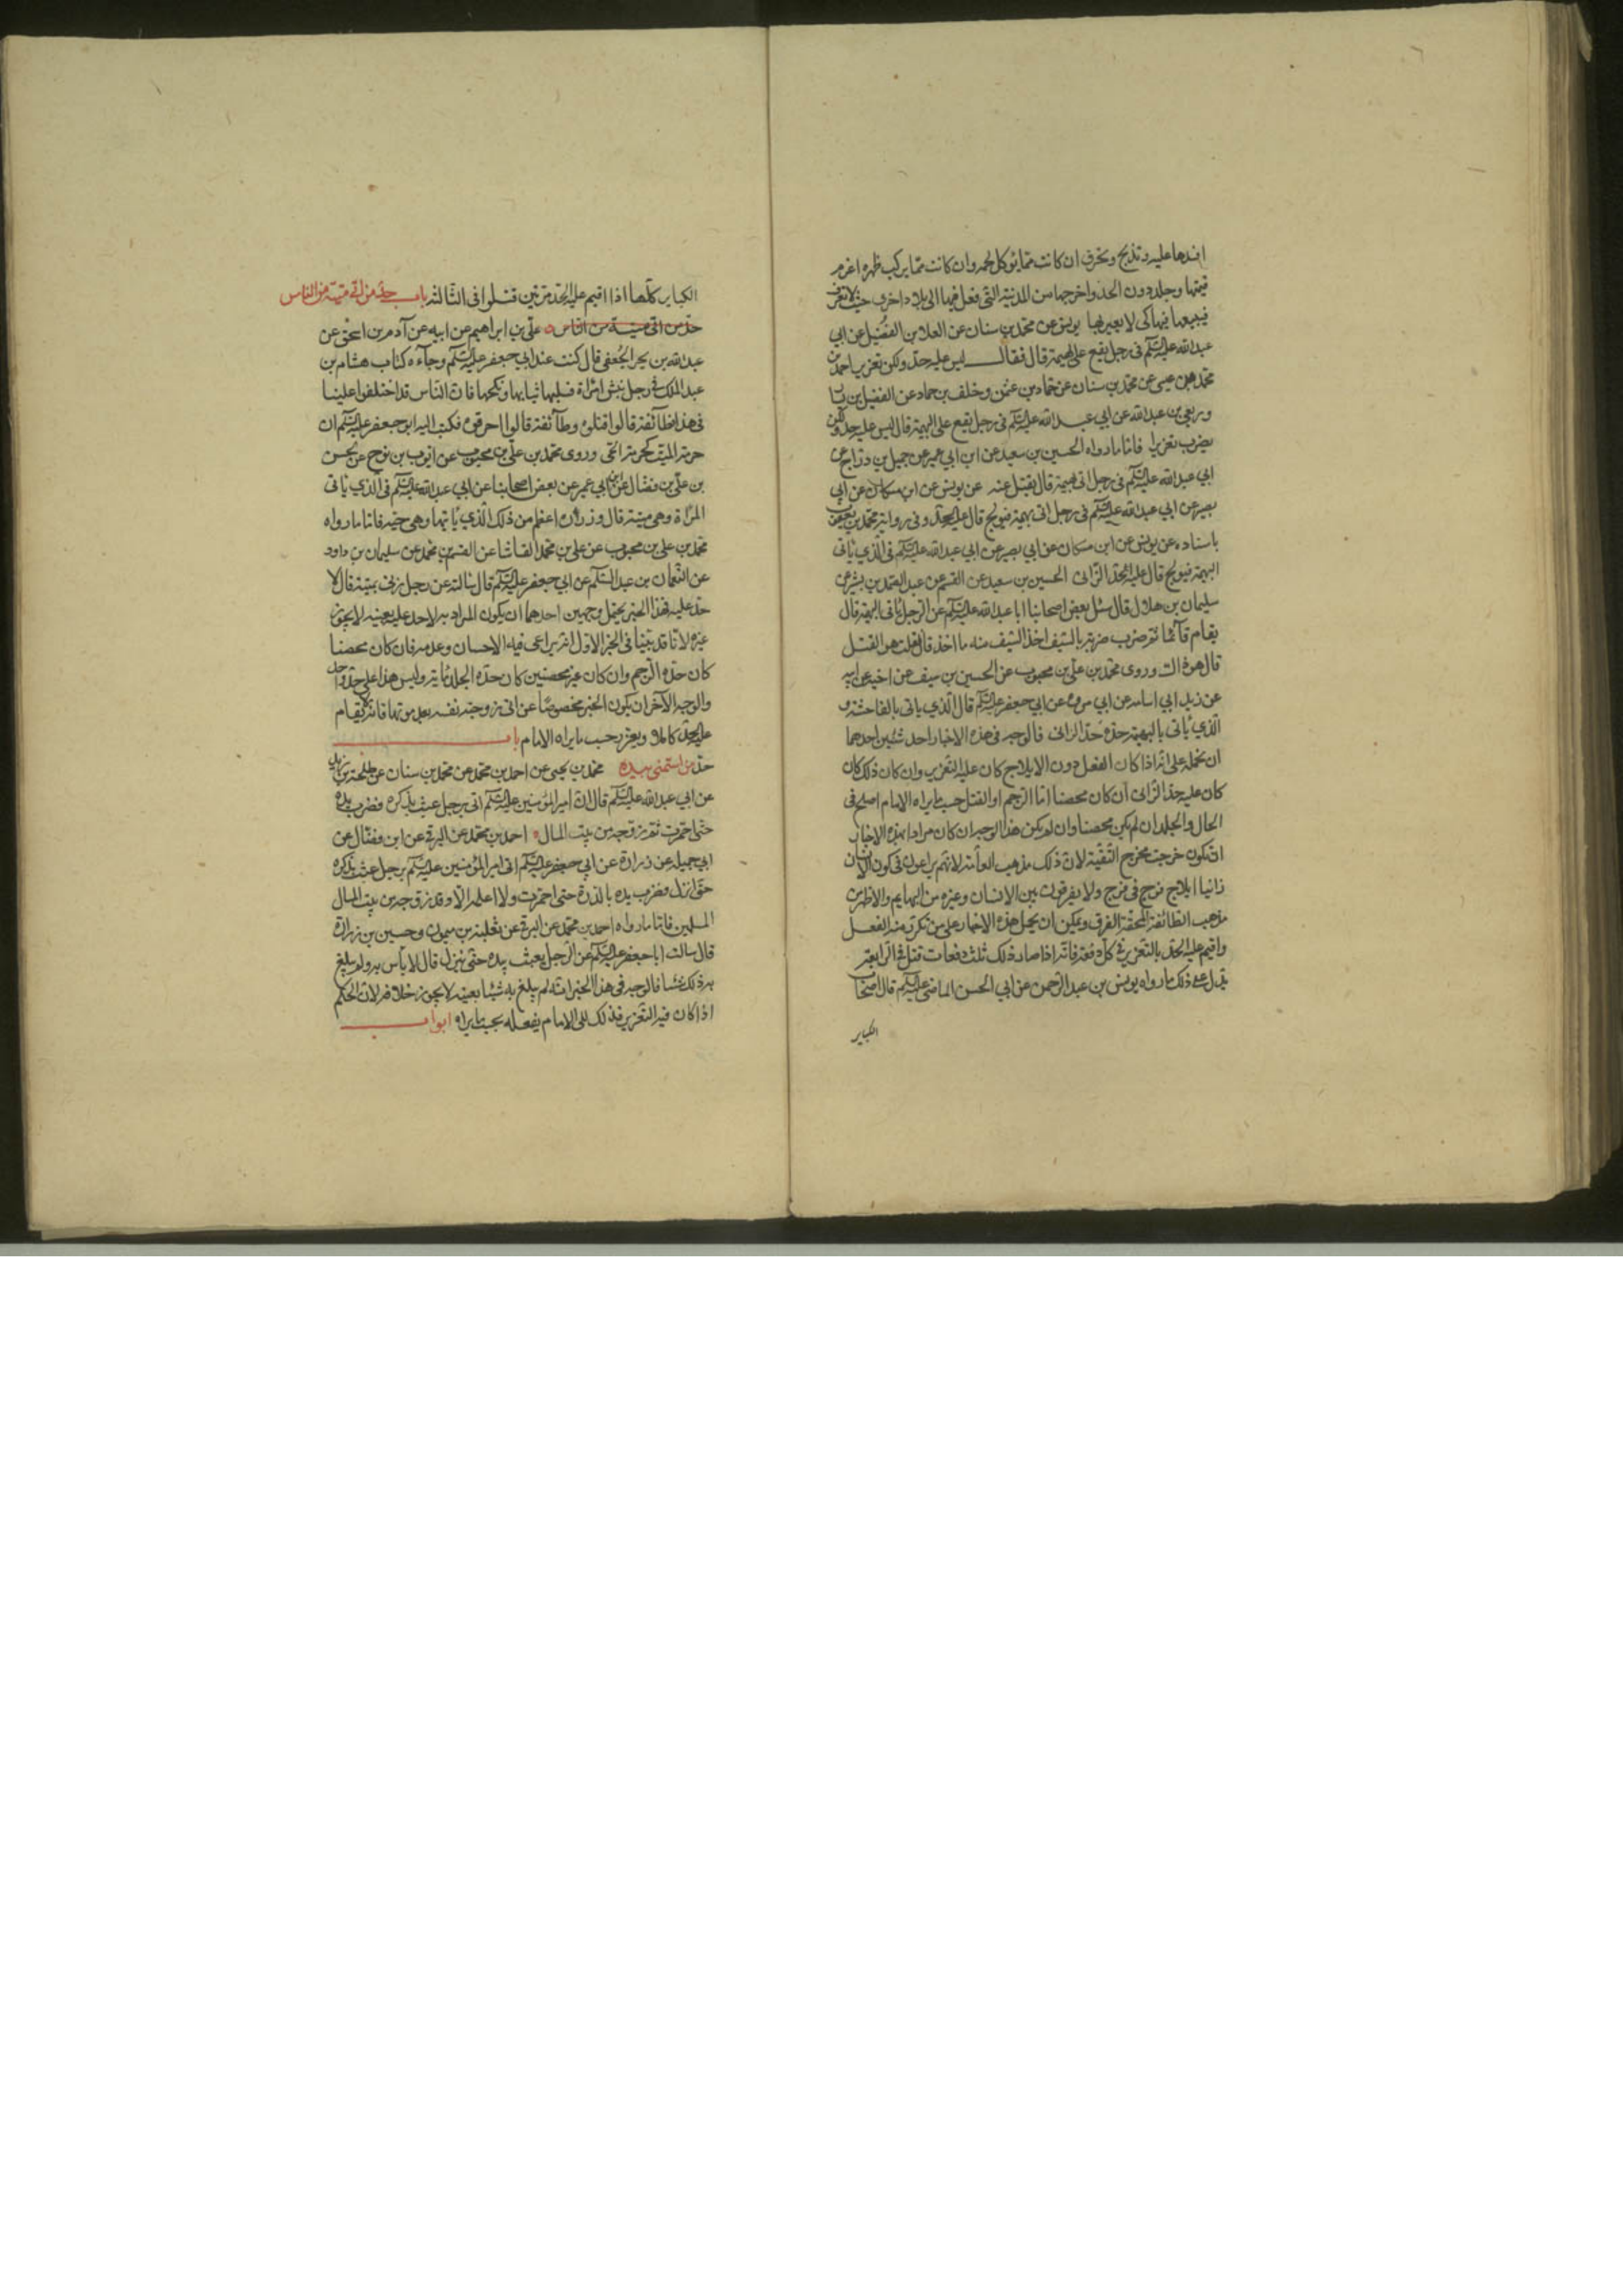 افسدها عليه وتذبح وتحرق ان كانت مما يؤكل لحمه وان كانت مما يركب ظهره اغرم
قيمتها وجلد دون الحد واخرجها من المدينة التي فعل فيها الى بلاد اخرى حيث لا تعرف
فيبيعها فيها كي لا يعير بها يونس عن محمد بن سنان عن العلا بن الفضيل عن ابي
عبد الله عليه السلم في رجل يقع على بهيمة قال فقال ليس عليه حد ولكن تعزير احمد بن
محمد بن عيسى عن محمد بن سنان عن حماد بن عثمن وخلف بن حماد عن الفضيل بن يسا
وربعي بن عبد الله عن ابي عبد الله عليه السلم في رجل يقع على البهيمة قال ليس عليه حد ولكن
يضرب تعزيرا فاما ما رواه الحسين بن سعيد عن ابن ابي عمير عن جميل بن دراج عن
ابي عبد الله عليه السلم في رجل اتى بهيمة قال يقتل عنه عن يونس عن ابن مسكان عن ابي
بصير عن ابي عبد الله عليه السلم في رجل اتى بهيمة فيولج قال عليه الحد وفي رواية محمد بن يعقوب
باسناده عن يونس عن ابن مسكان عن ابي بصير عن ابي عبد الله عليه السلم في الذي ياتى
البهيمة فيولج قال عليه الحد الزانى الحسين بن سعيد عن القسم عن عبد الصمد بن بشير عن
سليمان بن هلال قال سئل بعض اصحابنا ابا عبد الله عليه السلم عن الرجل ياتى البهيمة قال
يقام قآئما ثم يضرب ضربة بالسيف اخذ السيف منه ما اخذ قال فقلت هو القتل
قال هو ذاك وروى محمد بن علي بن محبوب عن الحسين بن سيف عن اخيه عن ابيه
عن زيد ابي اسامة عن ابي مروه عن ابي جعفر عليه السلم قال الذي ياتى بالفاحشة و
الذي ياتى بالبهيمة حده حد الزانى فالوجه في هذه الاخبار احد شيئين احدهما
ان نحمله على انه اذا كان الفعل دون الايلاج كان عليه التعزير وان كان ذلك كان
كان عليه حد الزانى ان كان محصنا اما الرجم او القتل حسب ما يراه الامام اصلح في
الحال والجلد ان لم يكن محصنا وان لم يكن هذا الوجه ان كان مرادا بهذه الاخبار
ان يكون خرجت مخرج التقية لان ذلك مذهب العآمة لانهم يراعون في كون الانسان
زانيا ايلاج فرج في فرج ولا يفرقون بين الانسان وغيره من البهايم والاظهر من
مذهب الطائفة المحقة الفرق ويمكن ان يحمل هذه الاخبار على من تكرر منه الفعل
واقيم عليه الحد بالتعزير في كل دفعة فانه اذا صار ذلك ثلث دفعات قتل في الرابعة
يدل على ذلك ما رواه يونس بن عبد الرحمن عن ابي الحسن الماضي عليه السلم قال اصحاب
الكباير
الكباير كلها اذا اقيم عليه الحد مرتين قتلوا في الثالثة باب حد من اتى ميتة من الناس
حد من اتى ميتة من الناس علي بن ابراهيم عن ابيه عن آدم بن اسحق عن
عبد الله بن محمد الجعفي قال كنت عند ابي جعفر عليه السلم وجآءه كتاب هشام بن
عبد الملك في رجل نبش امراة فسلبها ثيابها ونكحها فان الناس قد اختلفوا علينا
في هذا طآئفة قالوا اقتلوه وطآئفة قالوا احرقوه فكتب اليه ابو جعفر عليه السلم ان
حرمة الميت كحرمة الحى وروى محمد بن علي بن محبوب عن ايوب بن نوح عن الحسن
بن علي بن فضال عن ابن ابي عمير عن بعض اصحابنا عن ابي عبد الله عليه السلم في الذي ياتى
المراة وهي ميتة قال وزره اعظم من ذلك الذي ياتيها وهي حية فاما ما رواه
محمد بن علي بن محبوب عن علي بن محمد القاشا عن القسم بن محمد عن سليمان بن داود
عن النعمان بن عبد السلم عن ابي جعفر عليه السلم قال سالته عن رجل زنى بميتة قال لا
حد عليه فهذا الخبر يحتمل وجهين احدهما ان يكون المراد به لا حد عليه بعينه لا يجوز
غيره لانا قد بينا في الخبر الاول انه يراعى فيه الاحسان وعدمه فان كان محصنا
كان حده الرجم وان كان غير محصنين كان حده الجلد ماية وليس هذا على حد واحد
والوجه الآخر ان يكون الخبر مخصوصا عن اتى زوجة نفسه بعد موتها فانه لا يقام
عليه الحد كاملا ويعزر حسب ما يراه الامام باب
حد من استمنى بيده محمد بن يحيى عن احمد بن محمد عن محمد بن سنان عن طلحة بن زيد
عن ابي عبد الله عليه السلم قال ان امير المؤمنين عليه السلم اتى برجل عبث بذكره فضرب يده
حتى احمرت ثم زوجه من بيت المال احمد بن محمد عن البرقي عن ابن فضال عن
ابي جميلة عن زرارة عن ابي جعفر عليه السلم اتى امير المؤمنين عليه السلم برجل عبث بذكره
حتى انزل فضرب يده بالدرة حتى احمرت ولا اعلمه الا وقد زوجه من بيت المال
المسلمين فاما ما رواه احمد بن محمد عن البرقي عن ثعلبة بن ميمون وحسين بن زرارة
قال سالت ابا جعفر عليه السلم عن الرجل يعبث بيده حتى ينزل قال لا بأس به ولم يبلغ
به ذلك شئا فالوجه في هذا الخبر انه لم يبلغ به شيئا بعينه لا يجوز خلافه لان الحكم
اذا كان فيه التعزير فذلك الى الامام يفعله بحسب ما يراه ابواب